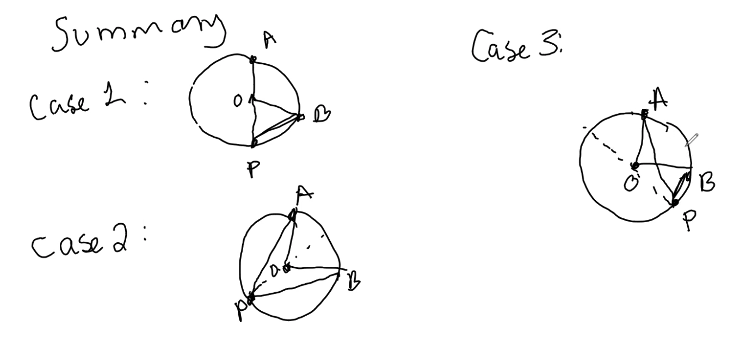 Summary
Case 1:
A
O
B
P
Case 2:
A
O
B
P
Case 3:
A
O
B
P